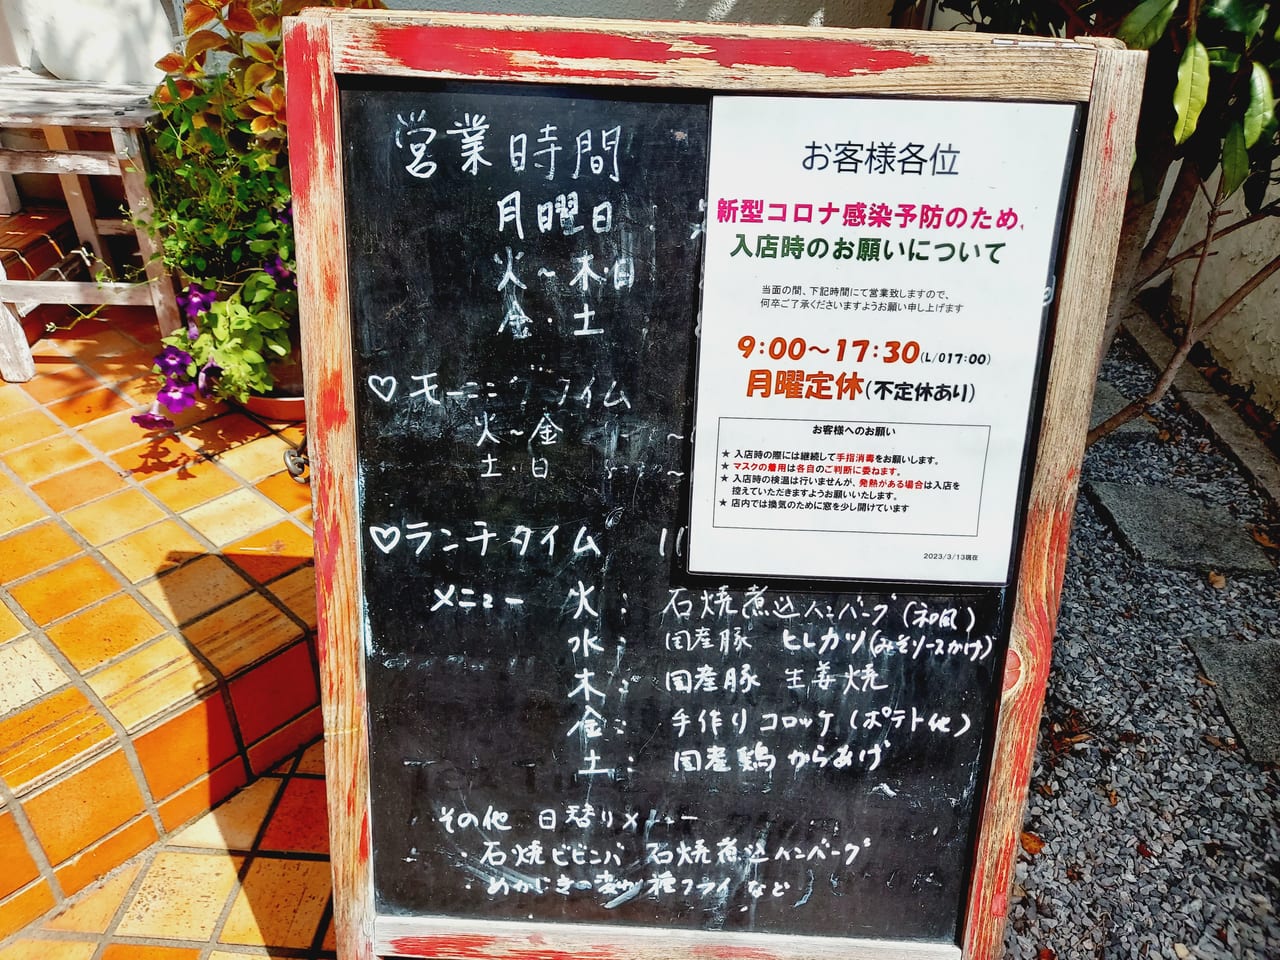 営業時間
月曜日：
火～木・日
金・土：
♡モーニングタイム
火～金 ～
土・日 ～
♡ランチタイム 11
メニュー 火：石焼煮込ハンバーグ(和風)
水：国産豚 ヒレカツ(みそソースかけ)
木：国産豚 生姜焼
金：手作りコロッケ(ポテト他)
土：国産鶏 からあげ
その他 日替りメニュー
・石焼ビビンバ 石焼煮込ハンバーグ
・めかじき フライ など
お客様各位
新型コロナ感染予防のため、
入店時のお願いについて
当面の間、下記時間にて営業致しますので、
何卒ご了承くださいますようお願い申し上げます
9:00～17:30(L/O17:00)
月曜定休(不定休あり)
お客様へのお願い
★ 入店時の際には継続して手指消毒をお願いします。
★ マスクの着用は各自のご判断に委ねます。
★ 入店時の検温は行いませんが、発熱がある場合は入店を
控えていただきますようお願いいたします。
★ 店内では換気のために窓を少し開けています
2023/3/13現在